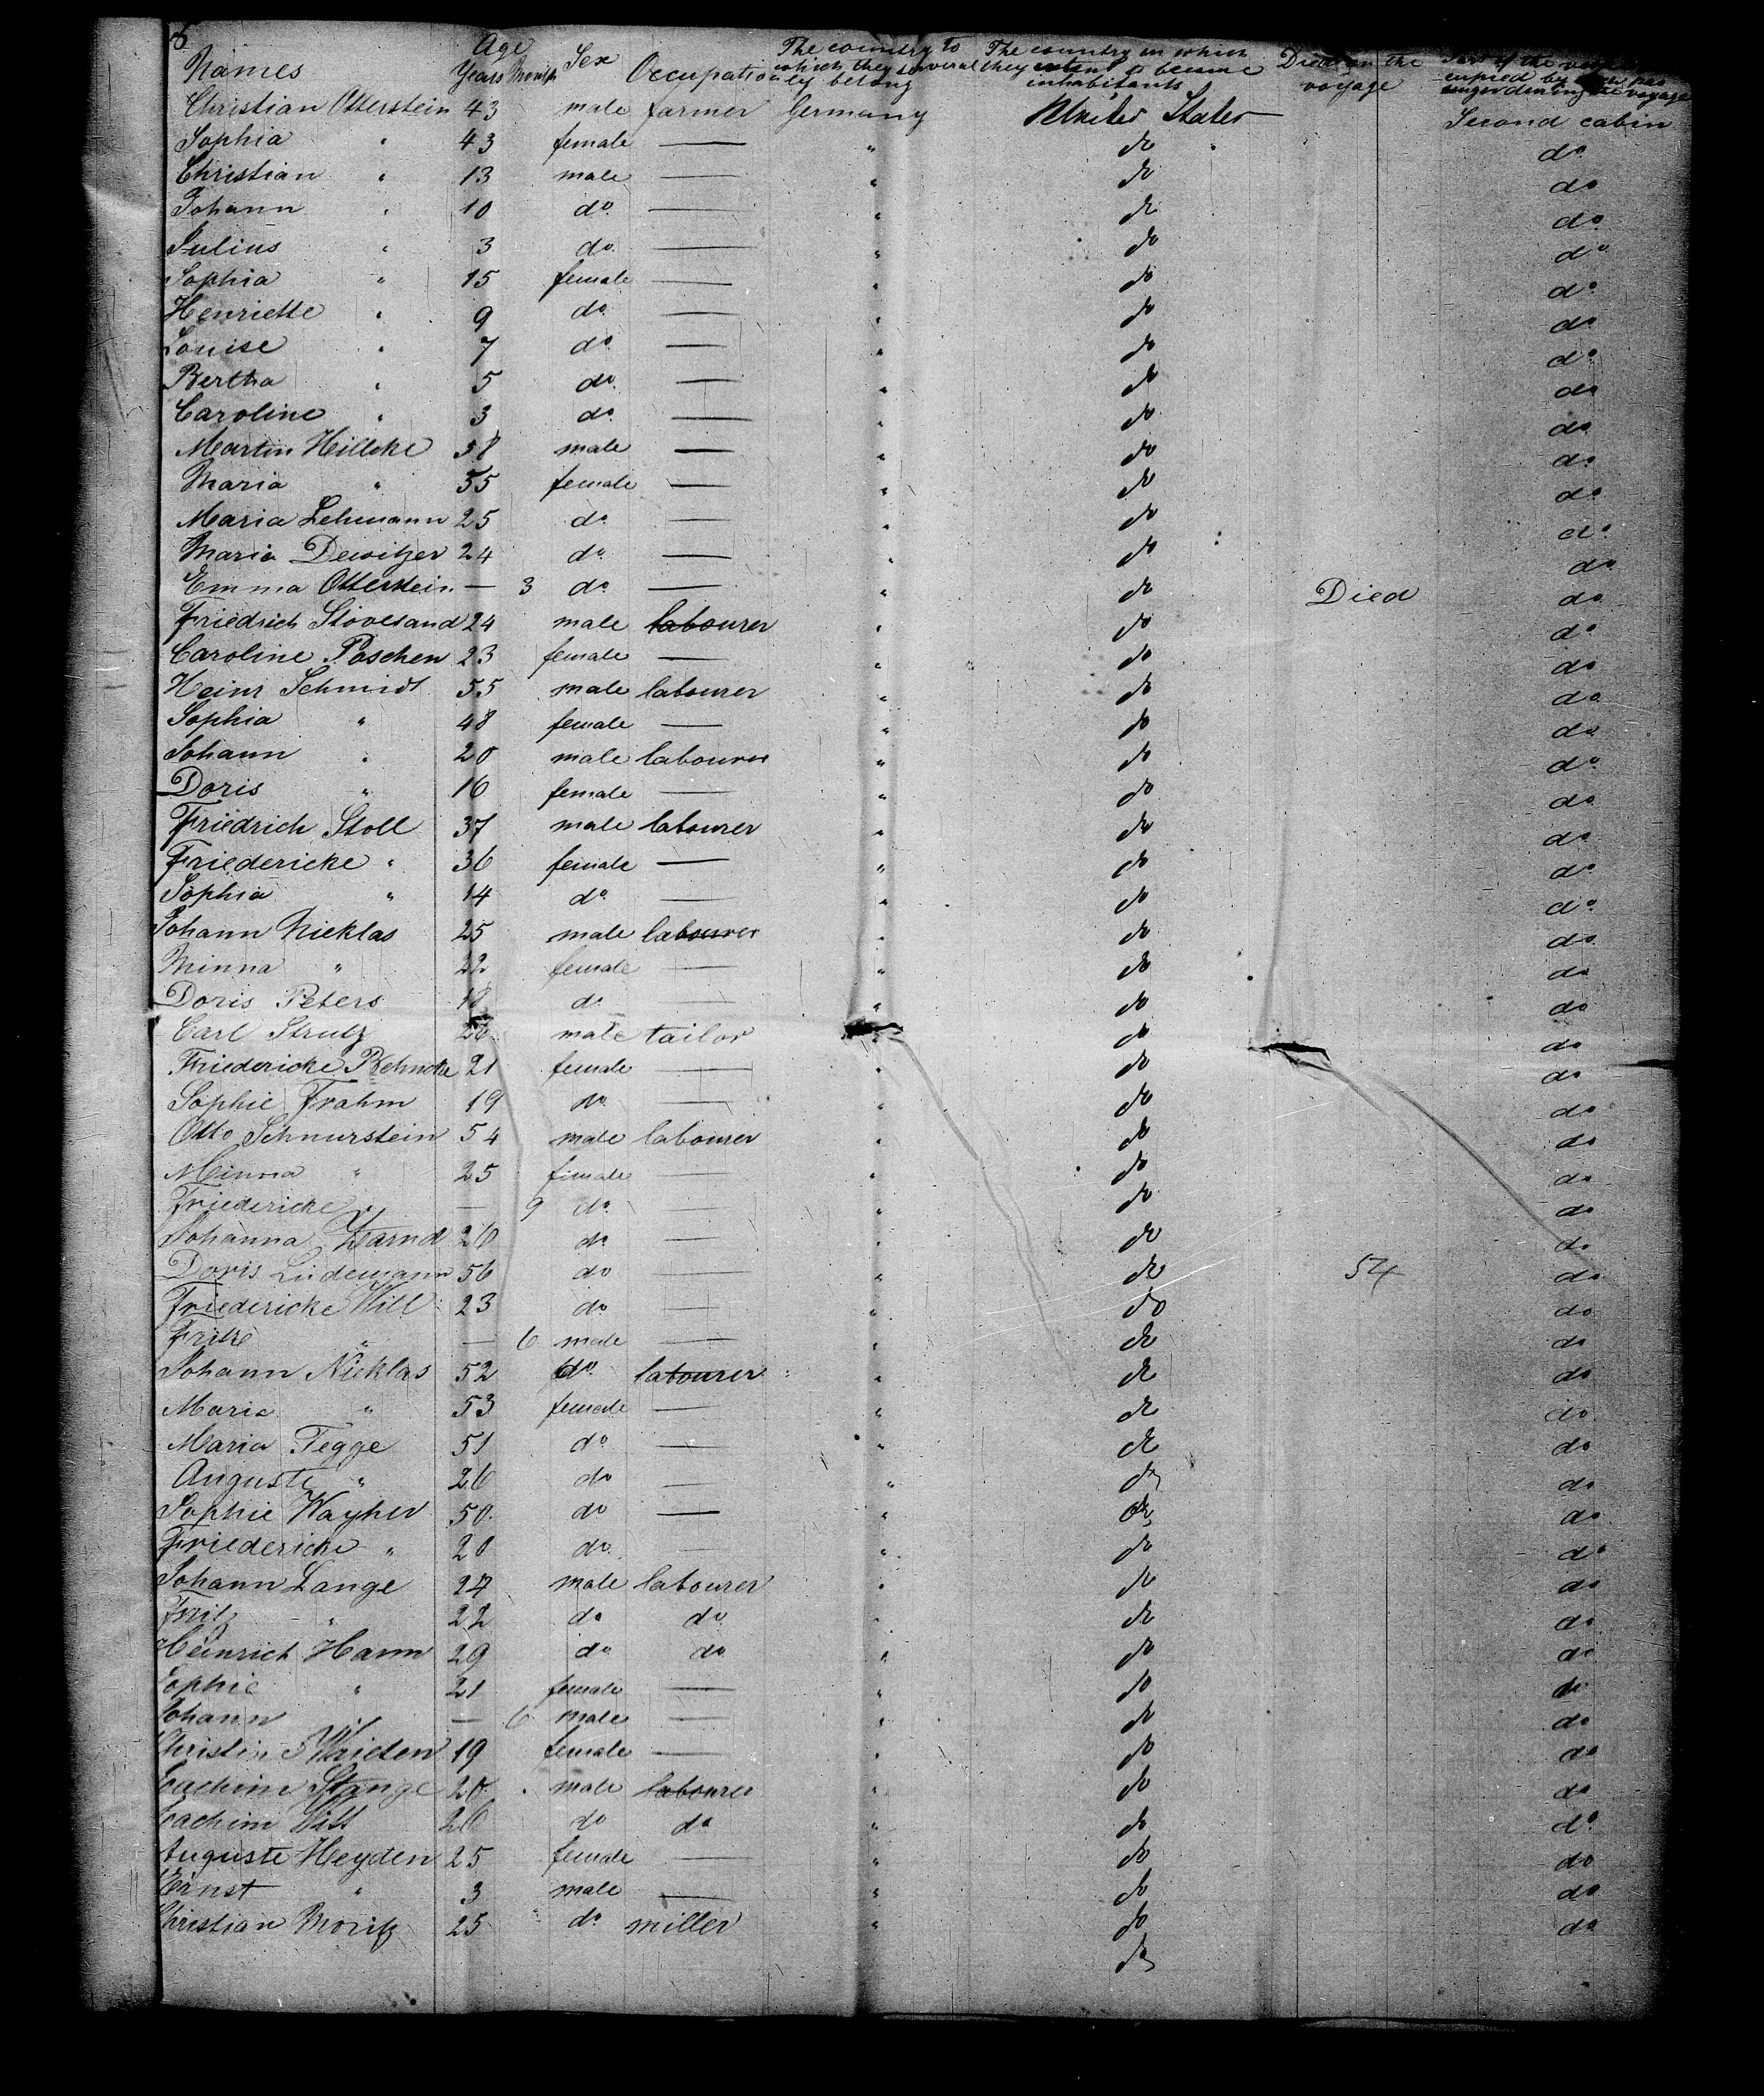 5
Names Age Years Months Sex Occupation The country to which they severally belong The country in which they intend to become inhabitants Died on the voyage Part of the vessel occupied by each passenger during the voyage
Christian Otterstein 43 male farmer Germany United States Second cabin
Sophia " 43 female — " do do
Christian " 13 male — " do do
Johann " 10 do — " do do
Julius " 3 do — " do do
Sophia " 15 female — " do do
Henriette " 9 do — " do do
Louise " 7 do — " do do
Bertha " 5 do — " do do
Caroline " 3 do — " do do
Martin Hillcke 58 male — " do do
Maria " 55 female — " do do
Maria Lehmann 25 do — " do do
Maria Dewitzer 24 do — " do do
Emma Otterstein — 3 do — " do Died do
Friedrich Stovesand 24 male labourer " do do
Caroline Paschen 23 female — " do do
Heinr Schmidt 55 male labourer " do do
Sophia " 48 female — " do do
Johann " 20 male labourer " do do
Doris " 16 female — " do do
Friedrich Stoll 37 male labourer " do do
Friedericke " 36 female — " do do
Sophia " 14 do — " do do
Johann Nicklas 25 male labourer " do do
Minna " 22 female — " do do
Doris Peters 18 do — " do do
Carl Strutz male tailor " do do
Friedericke Behncke 21 female — " do do
Sophie Frahm 19 do — " do do
Otto Schnurstein 54 male labourer " do do
Minna " 25 female — " do do
Friedericke " — 9 do — " do do
Johanna Zarnd 26 do — " do do
Doris Lüdemann 56 do — " do 54 do
Friedericke Will 23 do — " do do
Fritz " — 6 male — " do do
Johann Nicklas 52 do labourer " do do
Maria " 53 female — " do do
Maria Tegge 51 do — " do do
Auguste " 26 do — " do do
Sophie Wayher 50 do — " do do
Friedericke " 20 do — " do do
Johann Lange 27 male labourer " do do
Fritz " 22 do do " do do
Heinrich Hamm 29 do do " do do
Sophie " 21 female — " do do
Johann " — 6 male — " do do
Christin 19 female — " do do
Joachim Stange 20 male labourer " do do
Joachim Witt 26 do do " do do
Auguste Heyden 25 female — " do do
Ernst " 3 male — " do do
Christian Moritz 25 do miller " do do
do